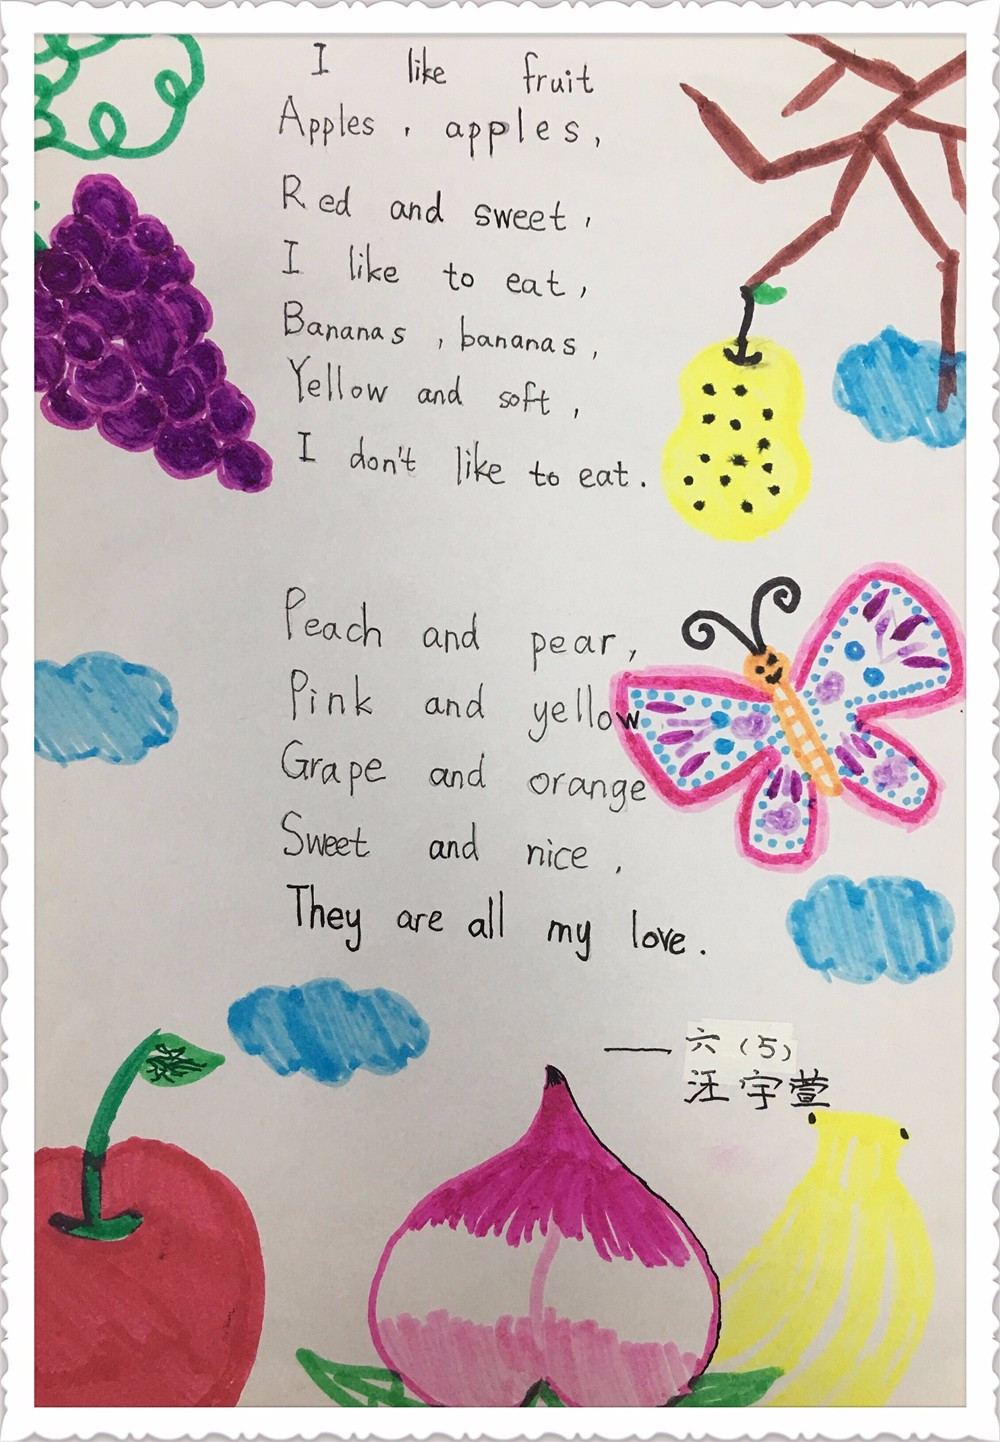 I like fruit
Apples , apples ,
Red and sweet ,
I like to eat ,
Bananas , bananas ,
Yellow and soft ,
I don't like to eat .
Peach and pear ,
Pink and yellow
Grape and orange
Sweet and nice .
They are all my love .
—— 六（5）
汪宇萱